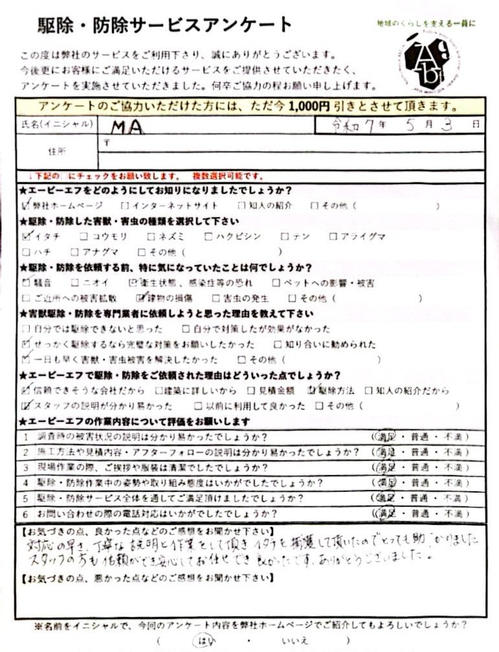 駆除・防除サービスアンケート
地域のくらしを支える一員に
この度は弊社のサービスをご利用下さり、誠にありがとうございます。
今後更にお客様にご満足いただけるサービスをご提供させていただきたく、
アンケートを実施させていただきました。何卒ご協力の程お願い申し上げます。
アンケートのご協力いただけた方には、ただ今1,000円引きとさせて頂きます。
氏名(イニシャル) MA 令和7年5月3日
住所 〒
↓下記の□にチェックをお願い致します。 複数選択可能です。
★エービーエフをどのようにしてお知りになりましたでしょうか?
☑弊社ホームページ □インターネットサイト □知人の紹介 □その他( )
★駆除・防除した害獣・害虫の種類を選択して下さい
☑イタチ □コウモリ □ネズミ □ハクビシン □テン □アライグマ
□ハチ □アナグマ □その他( )
★駆除・防除を依頼する前、特に気になっていたことは何でしょうか?
☑騒音 □ニオイ ☑衛生状態、感染症等の恐れ □ペットへの影響・被害
□ご近所への被害拡散 ☑建物の損傷 □害虫の発生 □その他( )
★害獣駆除・防除を専門業者に依頼しようと思った理由を教えて下さい
□自分では駆除できないと思った □自分で対策したが効果がなかった
☑せっかく駆除するなら完璧な対策をお願いしたかった □知り合いに勧められた
☑一日も早く害獣・害虫被害を解決したかった □その他( )
★エービーエフで駆除・防除をご依頼された理由はどういった点でしょうか?
☑信頼できそうな会社だから □建築に詳しいから □見積金額 ☑駆除方法 □知人の紹介だから
☑スタッフの説明が分かり易かった □以前に利用して良かった □その他( )
★エービーエフの作業内容について評価をお願いします
1 調査時の被害状況の説明は分かり易かったでしょうか? (満足・普通・不満)
2 施工方法や見積内容・アフターフォローの説明は分かり易かったでしょうか? (満足・普通・不満)
3 現場作業の際、ご挨拶や服装は清潔でしたでしょうか? (満足・普通・不満)
4 駆除・防除作業中の姿勢や取り組み態度はいかがでしたでしょうか? (満足・普通・不満)
5 駆除・防除サービス全体を通してご満足頂けましたでしょうか? (満足・普通・不満)
6 お問い合わせの際の電話対応はいかがでしたでしょうか? (満足・普通・不満)
【お気づきの点、良かった点などのご感想をお聞かせ下さい】
対応の早さ、丁寧な説明と作業をして頂きイタチを捕獲して頂いたのでとっても助かりました
スタッフの方も信頼ができ安心してお任せでき良かったです。ありがとうございました!
【お気づきの点、悪かった点などのご感想をお聞かせ下さい】
※名前をイニシャルで、今回のアンケート内容を弊社ホームページでご紹介してもよろしいでしょうか?
( はい ・ いいえ )